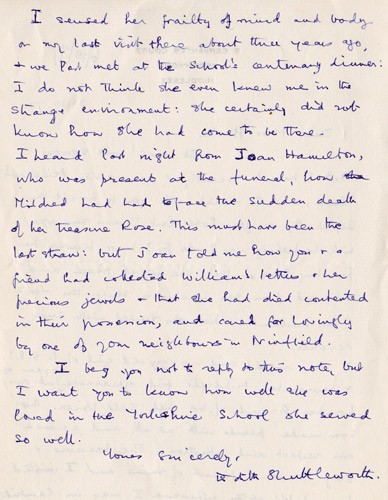 I sensed her frailty of mind and body
on my last visit there about three years ago,
+ we last met at the School's centenary dinner:
I do not think she even knew me in the
strange environment: she certainly did not
know how she had come to be there.
I heard last night from Joan Hamilton,
who was present at the funeral, how
Mildred had had to face the sudden death
of her treasure Rose. This must have been the
last straw: but Joan told me how you + a
friend had collected William's letters + her
precious jewels + that she had died contented
in their possession, and cared for lovingly
by one of your neighbours in Ninfield.
I beg you not to reply to this note, but
I want you to know how well she was
loved in the Yorkshire School she served
so well.
Yours sincerely,
Edith Shuttleworth.